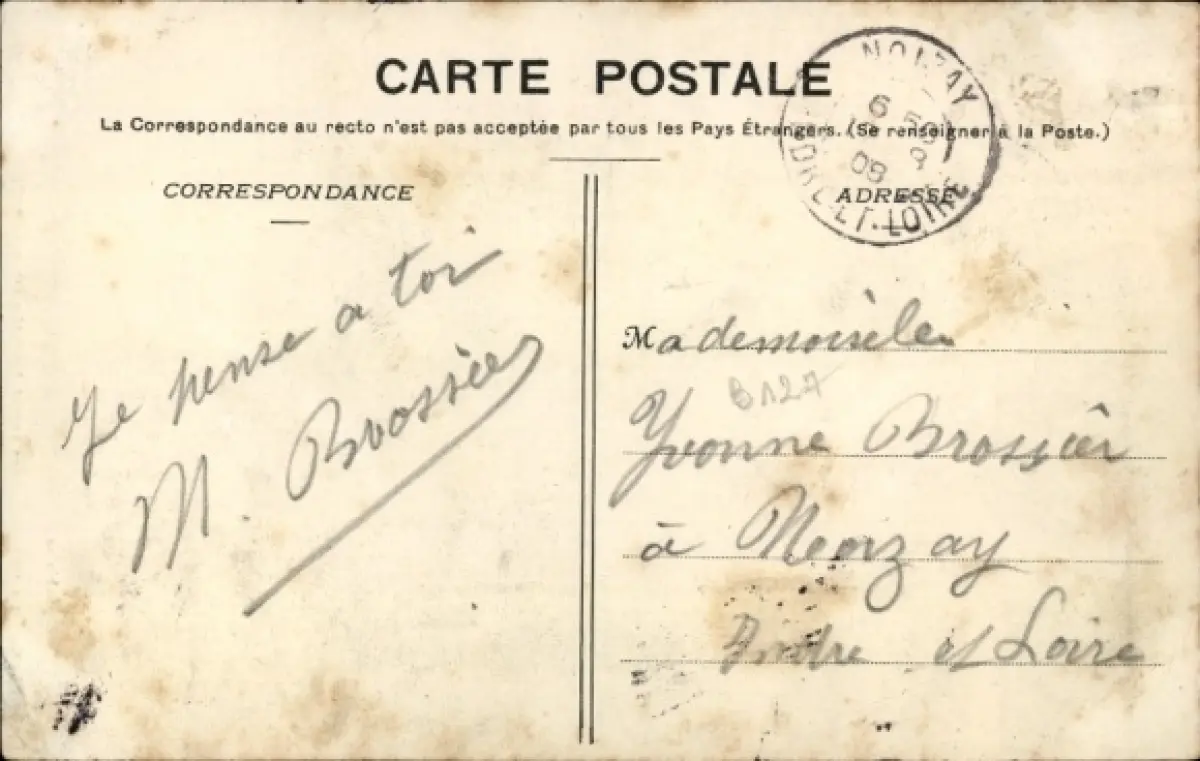 CARTE POSTALE
La Correspondance au recto n'est pas acceptée par tous les Pays Étrangers. (Se renseigner à la Poste.)
CORRESPONDANCE
Je pense a toi
M. Brossier
NOIZAY
6
09
INDRE-ET-LOIRE
ADRESSE
Mademoisèle
B127
Yvonne Brossier
à Noizay
Indre et Loire